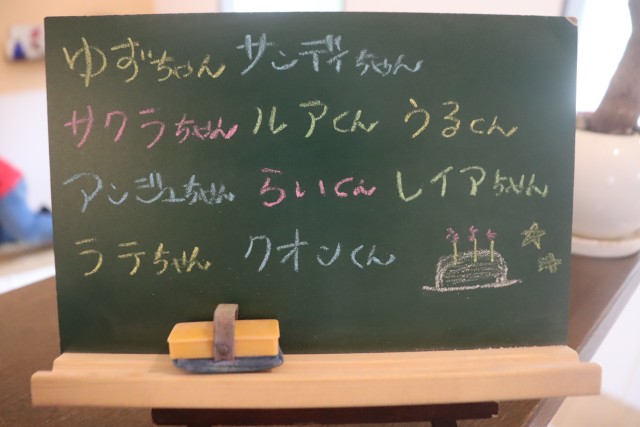 ゆずちゃん サンディちゃん
サクラちゃん ルアくん うるくん
アンジュちゃん らいくん レイアちゃん
ラテちゃん クオンくん